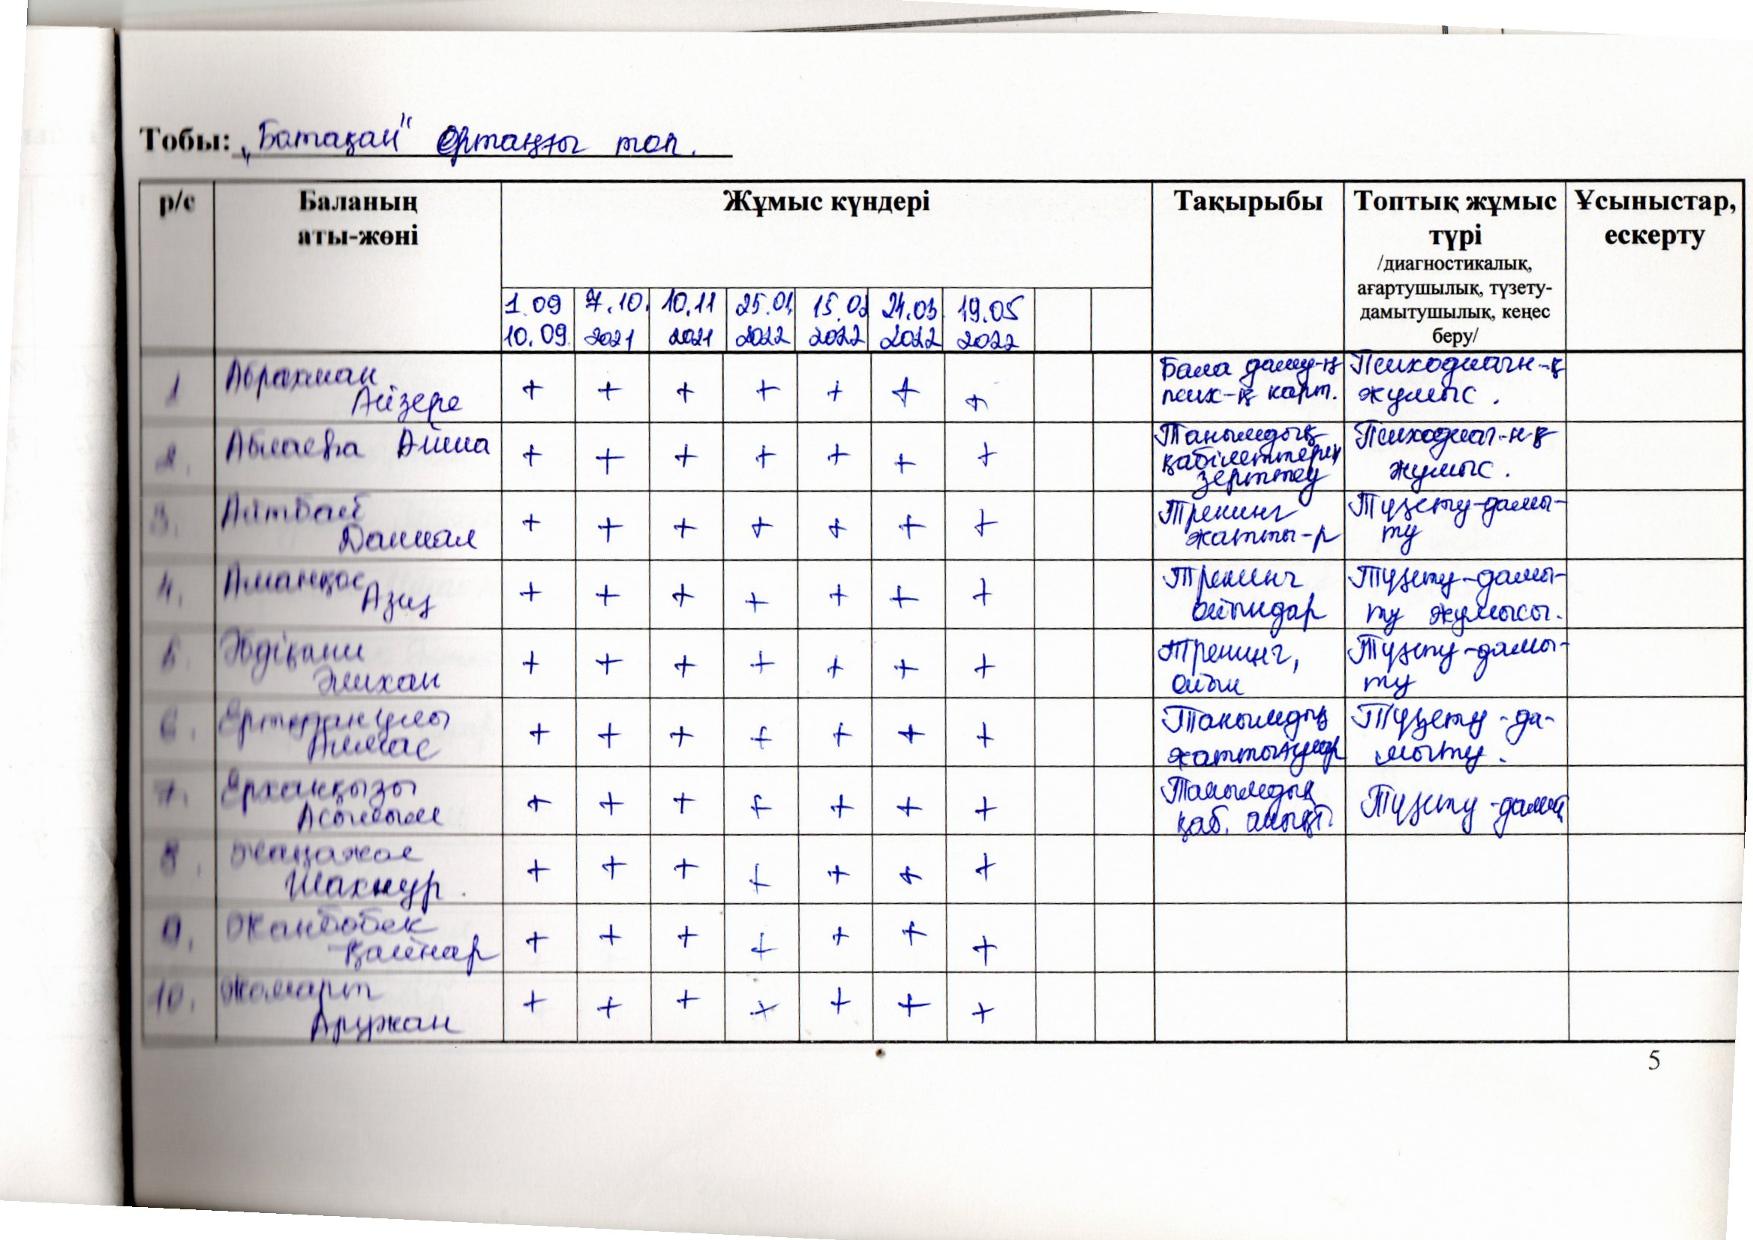 Тобы: „Ботақан" Ортаңғы топ.
р/с
Баланың
аты-жөні
Жұмыс күндері
Тақырыбы
Топтық жұмыс
түрі
/диагностикалық,
ағартушылық, түзету-
дамытушылық, кеңес
беру/
Ұсыныстар,
ескерту
1.09 7.10. 10.11 25.01. 15.02 24.03 19.05
10.09 2021 2021 2022 2022 2022 2022
1 Абрахман
Айзере
+ + + + + + +
Бала даму-ң
псих-қ карт.
Психодиагн-қ
жұмыс.
2. Аблаева Айша
+ + + + + + +
Танымдық
қабілеттерін
зерттеу
Психодиаг-н-қ
жұмыс.
3. Айтбай
Даниал
+ + + + + + +
Тренинг
жатты-р
Түзету-дамы-
ту
4. Аманқос
Азиз
+ + + + + + +
Тренинг
ойындар
Түзету-дамы-
ту жұмысы.
5. Әбдіғани
Әлихан
+ + + + + + +
Тренинг,
ойын
Түзету-дамы-
ту
6. Алмас
+ + + + + + +
Танымдық
жаттығулар
Түзету-да-
мыту.
7. Ерханқызы
Асылым
+ + + + + + +
Танымдық
қаб. анықт.
Түзету-даму
8. Жаңажол
Шахнұр.
+ + + + + + +
9. Жанбобек
Қайнар
+ + + + + + +
10. Жомарт
Аружан
+ + + + + + +
5